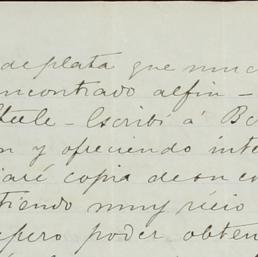 de plata que muc
ncontrado alfin –
Steele – Escribí á Bo
n y ofreciendo inte
aré copia de su co
tiendo muy
spero poder obten